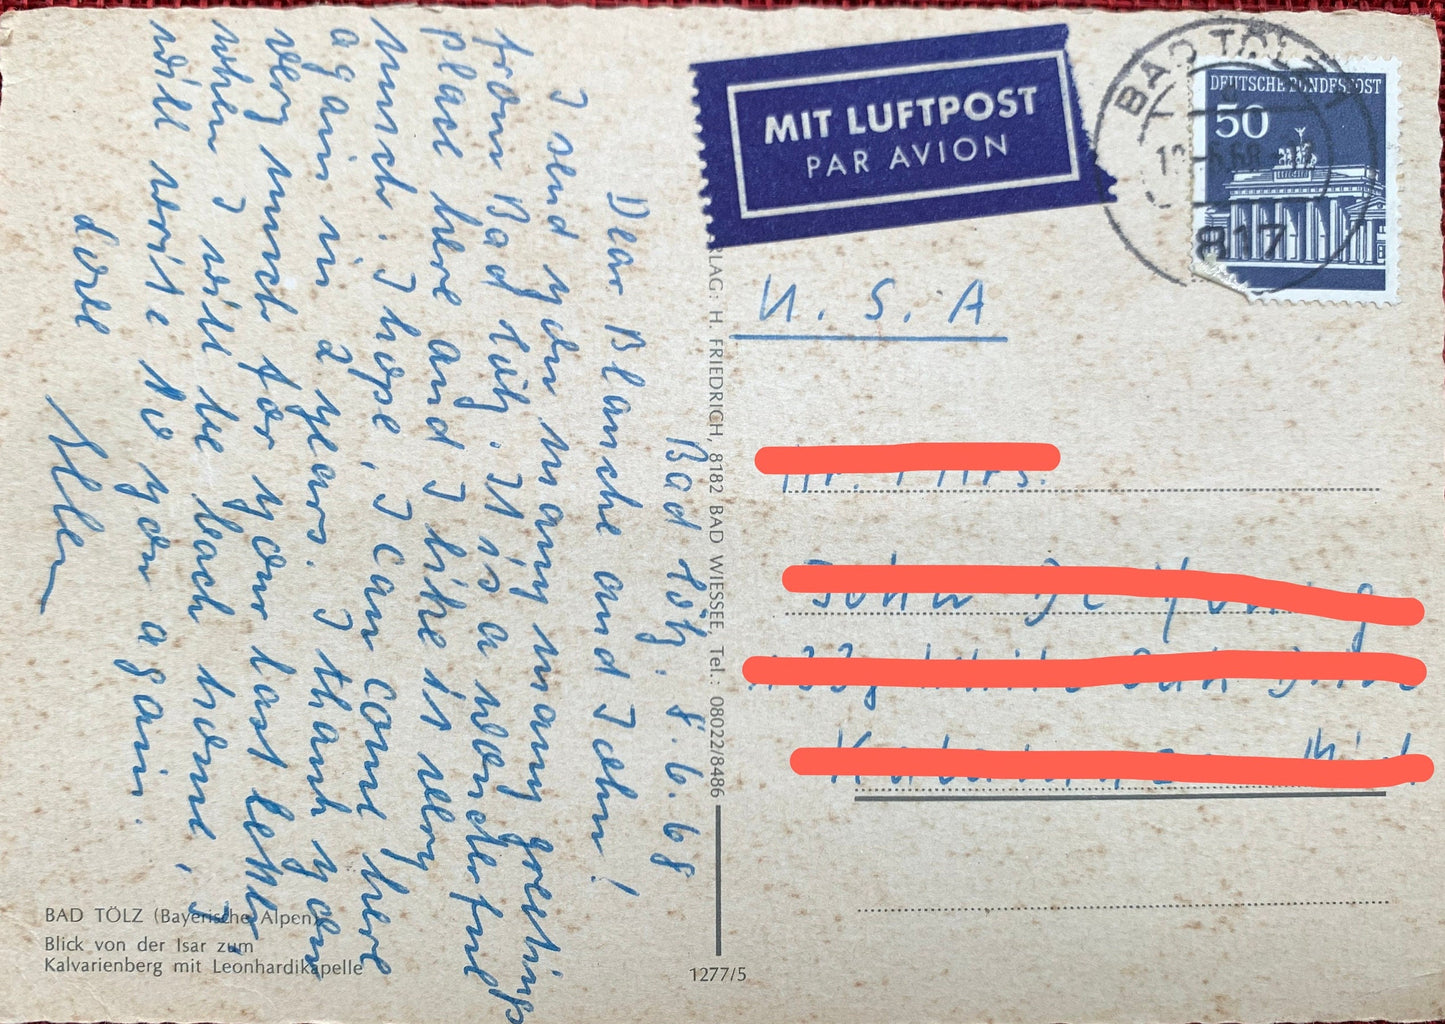 Bad Tölz. 8.6.68
Dear Blanche and John!
I send you many many greetings
from Bad Tölz. It is a wonderful
place here and I like it very
much. I hope, I can come here
again in 2 years. I thank you
very much for your last letter.
when I will be back home, I
will write to you again.
Love
Ellen
BAD TÖLZ (Bayerische Alpen)
Blick von der Isar zum
Kalvarienberg mit Leonhardikapelle
RLAG: H. FRIEDRICH, 8182 BAD WIESSEE, Tel.: 08022/8486
1277/5
MIT LUFTPOST
PAR AVION
BAD TÖLZ 1
817
DEUTSCHE BUNDESPOST
50
U. S. A